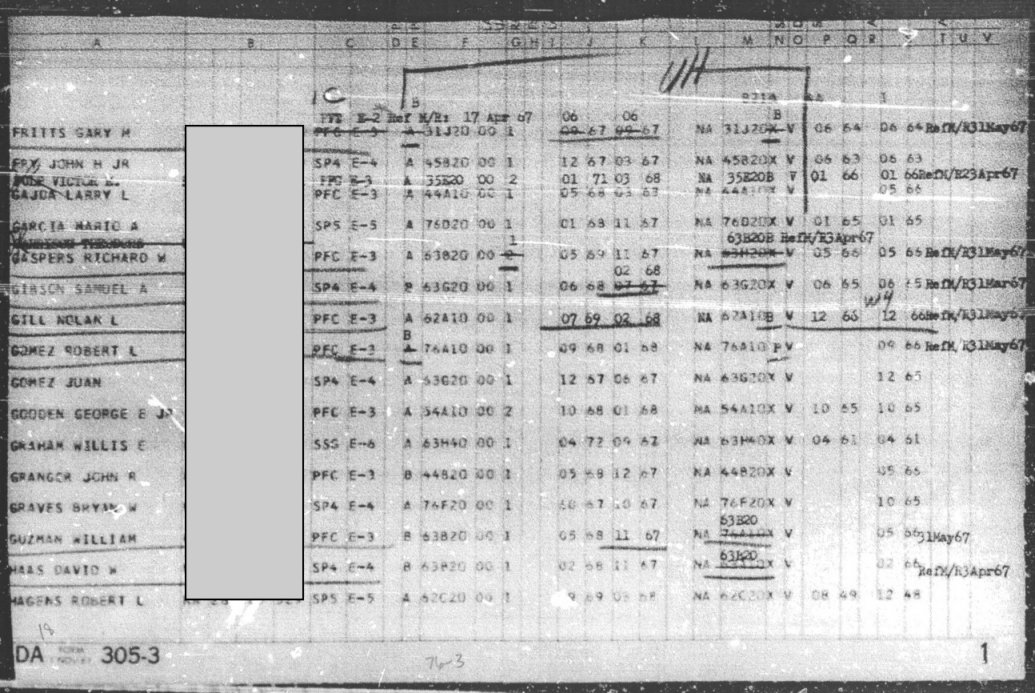 A B C D E F G H I J K L M N O P Q R T U V
UH
1 C
B
B710 6A 1
PFC E-2 Ref M/R: 17 Apr 67 06 06 B
FRITTS GARY M PFC E-3 A 31J20 00 1 09 67 09 67 NA 31J20X V 06 64 06 64 RefM/R31May67
FRY JOHN H JR SP4 E-4 A 45B20 00 1 12 67 03 67 NA 45B20X V 06 63 06 63
VICTOR E. PFC E-3 A 35E20 00 2 01 71 03 68 NA 35E20B V 01 66 01 66 RefM/R23Apr67
GAJDA LARRY L PFC E-3 A 44A10 00 1 05 68 03 63 NA 44A10X V 05 66
GARCIA MARIO A SP5 E-5 A 76D20 00 1 01 68 11 67 NA 76D20X V 01 65 01 65
1 63B20B RefM/R3Apr67
GASPERS RICHARD W PFC E-3 A 63B20 00 2 05 69 11 67 NA 63H20X V 05 66 05 66 RefM/R31May67
02 68
GIBSON SAMUEL A SP4 E-4 P 63G20 00 1 06 68 07 67 NA 63G20X V 06 65 06 65 RefM/R31Mar67
W4
GILL NOLAN L PFC E-3 A 62A10 00 1 07 69 02 68 NA 62A10B V 12 66 12 66 RefM/R31May67
B
GOMEZ ROBERT L PFC E-3 A 76A10 00 1 09 68 01 68 NA 76A10 P V 09 66 RefM/R31May67
GOMEZ JUAN SP4 E-4 A 63G20 00 1 12 67 06 67 NA 63G20X V 12 65
GOODEN GEORGE E JR PFC E-3 A 54A10 00 2 10 68 01 68 NA 54A10X V 10 65 10 65
GRAHAM WILLIS E SSG E-6 A 63H40 00 1 04 72 09 67 NA 63H40X V 04 61 04 61
GRANGER JOHN R PFC E-3 B 44B20 00 1 05 68 12 67 NA 44B20X V 05 66
GRAVES BRYAN W SP4 E-4 A 76F20 00 1 10 67 10 67 NA 76F20X V 10 65
63B20
GUZMAN WILLIAM PFC E-3 B 63B20 00 1 05 68 11 67 NA 76A10X V 05 66 31May67
63B20
HAAS DAVID W SP4 E-4 B 63B20 00 1 02 68 11 67 NA X V 02 66 RefM/R3Apr67
HAGENS ROBERT L SP5 E-5 A 62C20 00 1 69 03 68 NA 62C20X V 08 49 12 48
18
DA FORM 305-3 1
76-3